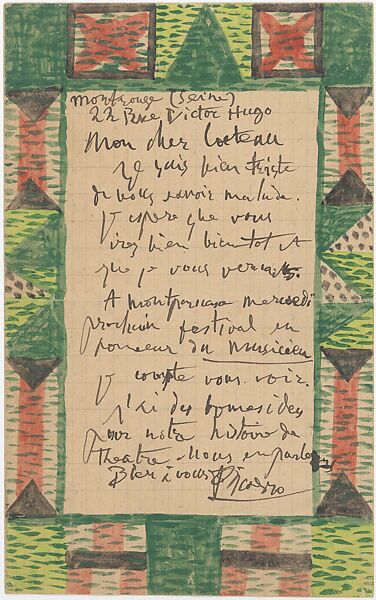 Montrouge (Seine)
22 Rue Victor Hugo
Mon cher Cocteau
Je suis bien triste
de vous savoir malade.
J'espere que vous
irez bien bientot et
que je vous verrai.
A Montparnasse mercredi
prochain festival en
honneur du musicien
je compte vous voir.
J'ai des bonnes idees
pour notre histoire de
theatre. Nous en parlerons
Bien a vous Picasso